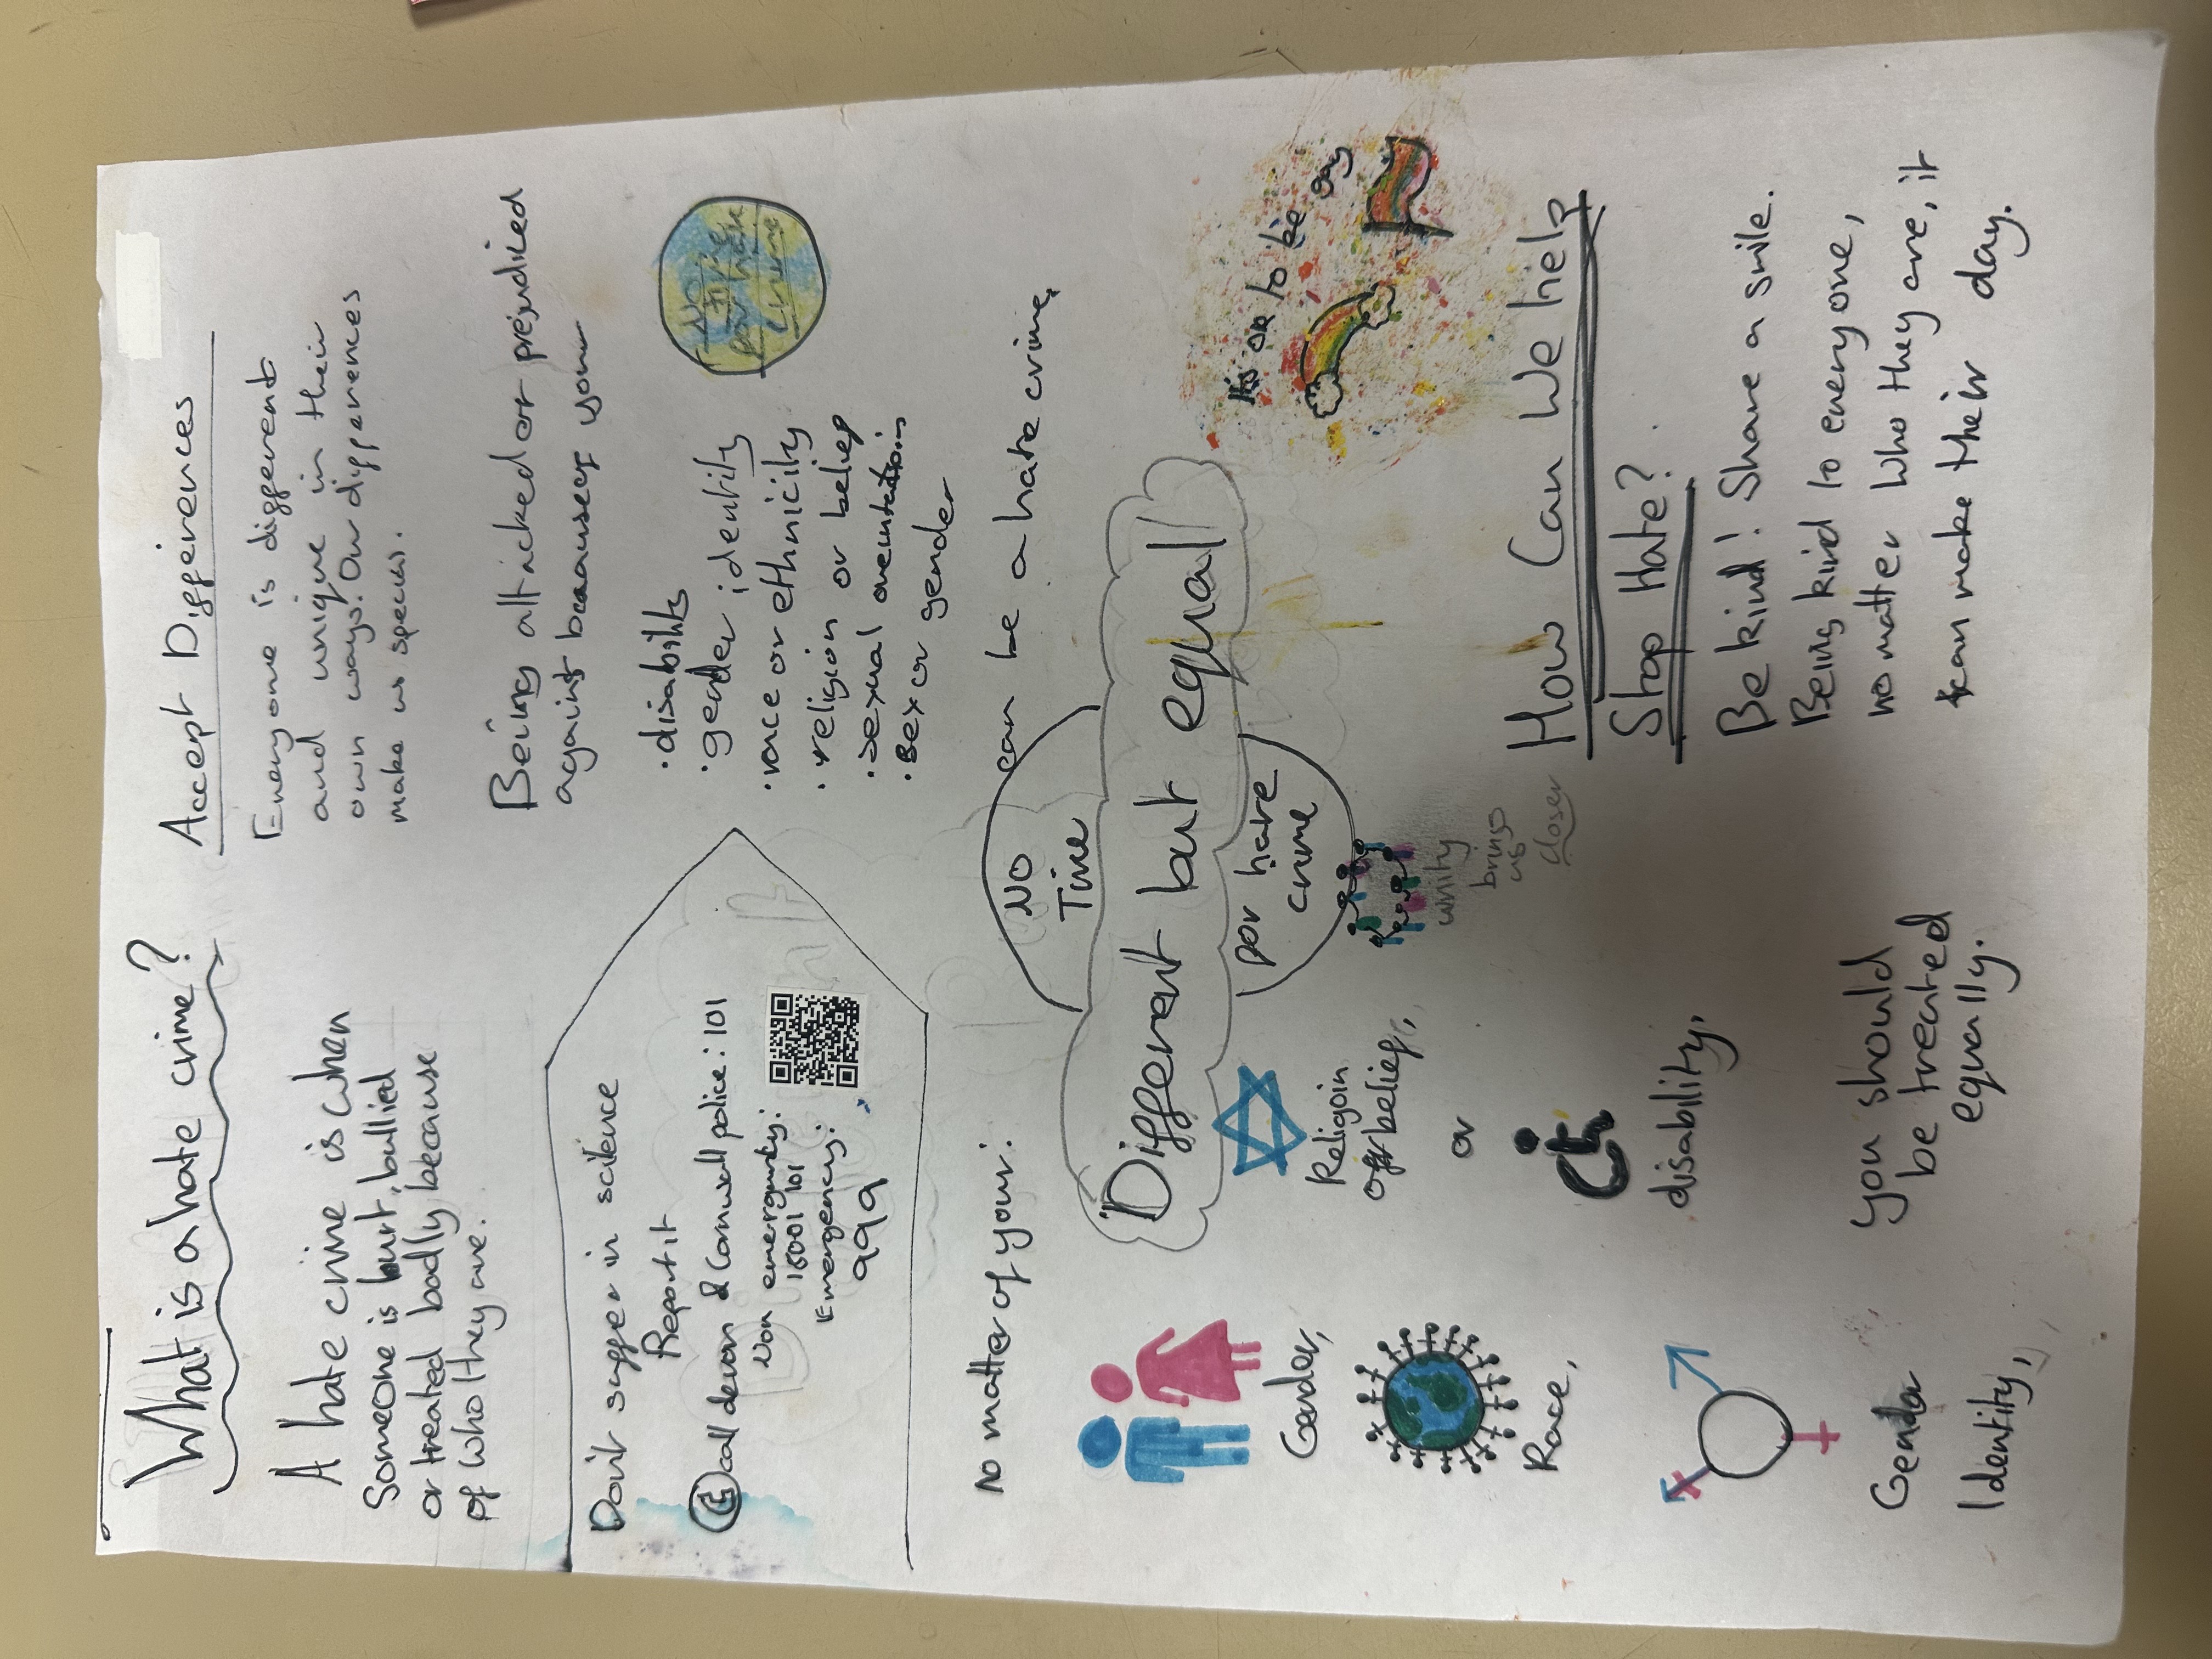 What is a hate crime?
A hate crime is when
Someone is hurt, bullied
or treated badly because
of who they are.
Don't suffer in scilence
Report it
call devon & Cornwall police: 101
Non emergency:
18001 101
Emergency:
999
Accept Differences
Everyone is different
and unique in their
own ways. Our differences
make us special.
Being attacked or prejudiced
against because of your
• disability
• gender identity
• race or ethnicity
• religion or belief
• sexual orientation
• sex or gender
can be a hate crime.
No
time
for hate
crime
No matter of your:
Gender,
Race,
Gender
Identity,
Religoin
or belief,
or
disability,
you should
be treated
equally.
No
Time
"Different but equal"
for hate
crime
unity
brings
us
closer
It's ok to be gay
How Can We help
Stop Hate?
Be kind! Share a smile.
Being kind to everyone,
no matter who they are, it
can make their day.